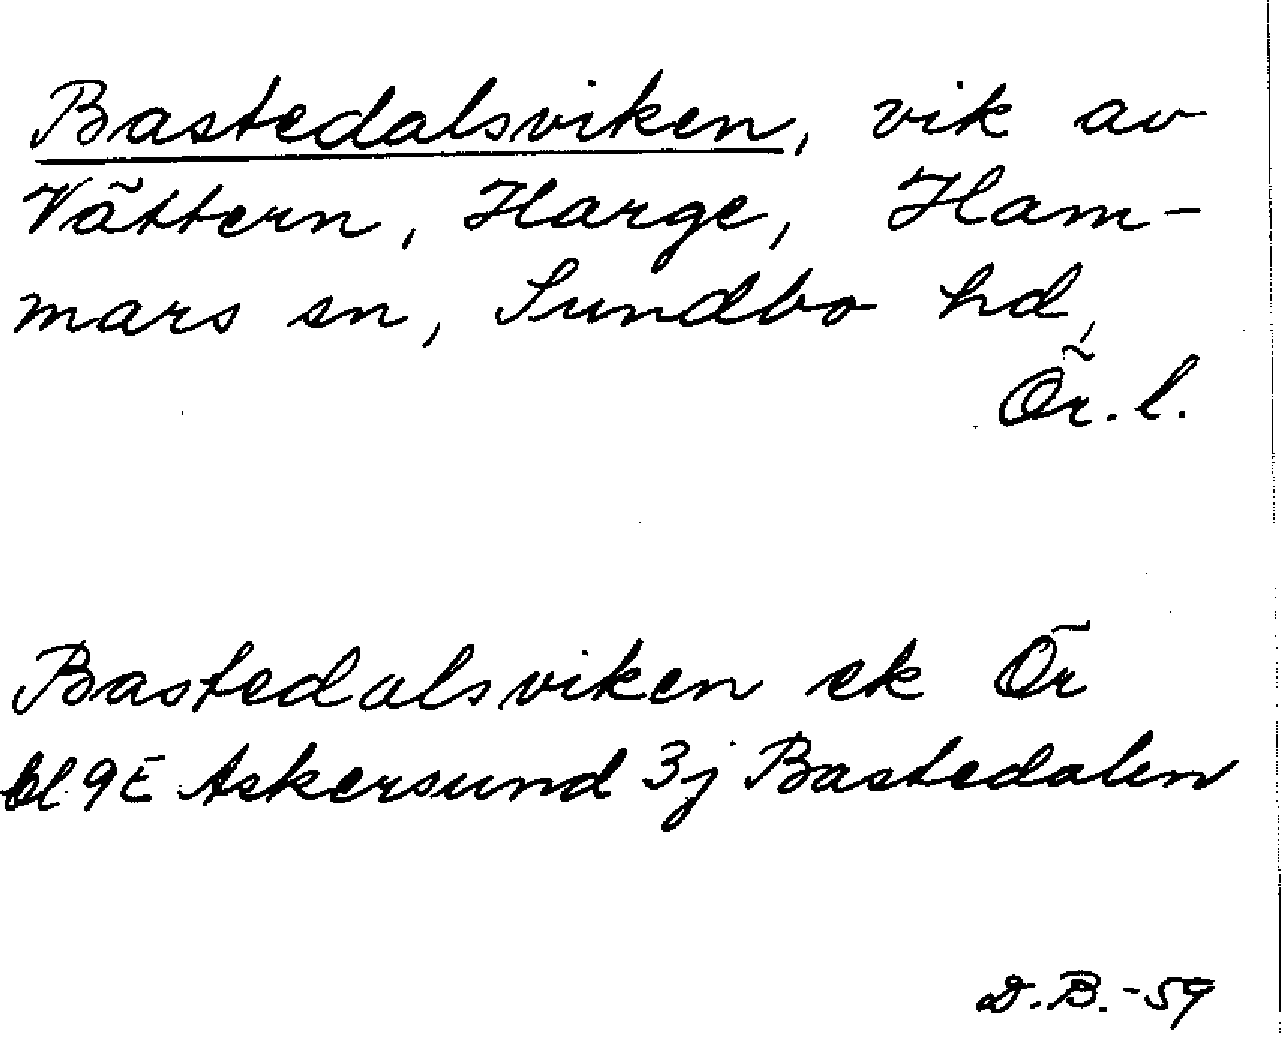 Bastedalsviken, vik av
Vättern, Harge, Ham-
mars sn, Sundbo hd,
Ör. l.
Bastedalsviken ek Ör
bl 9E Askersund 3j Bastedalen
D.B.-59